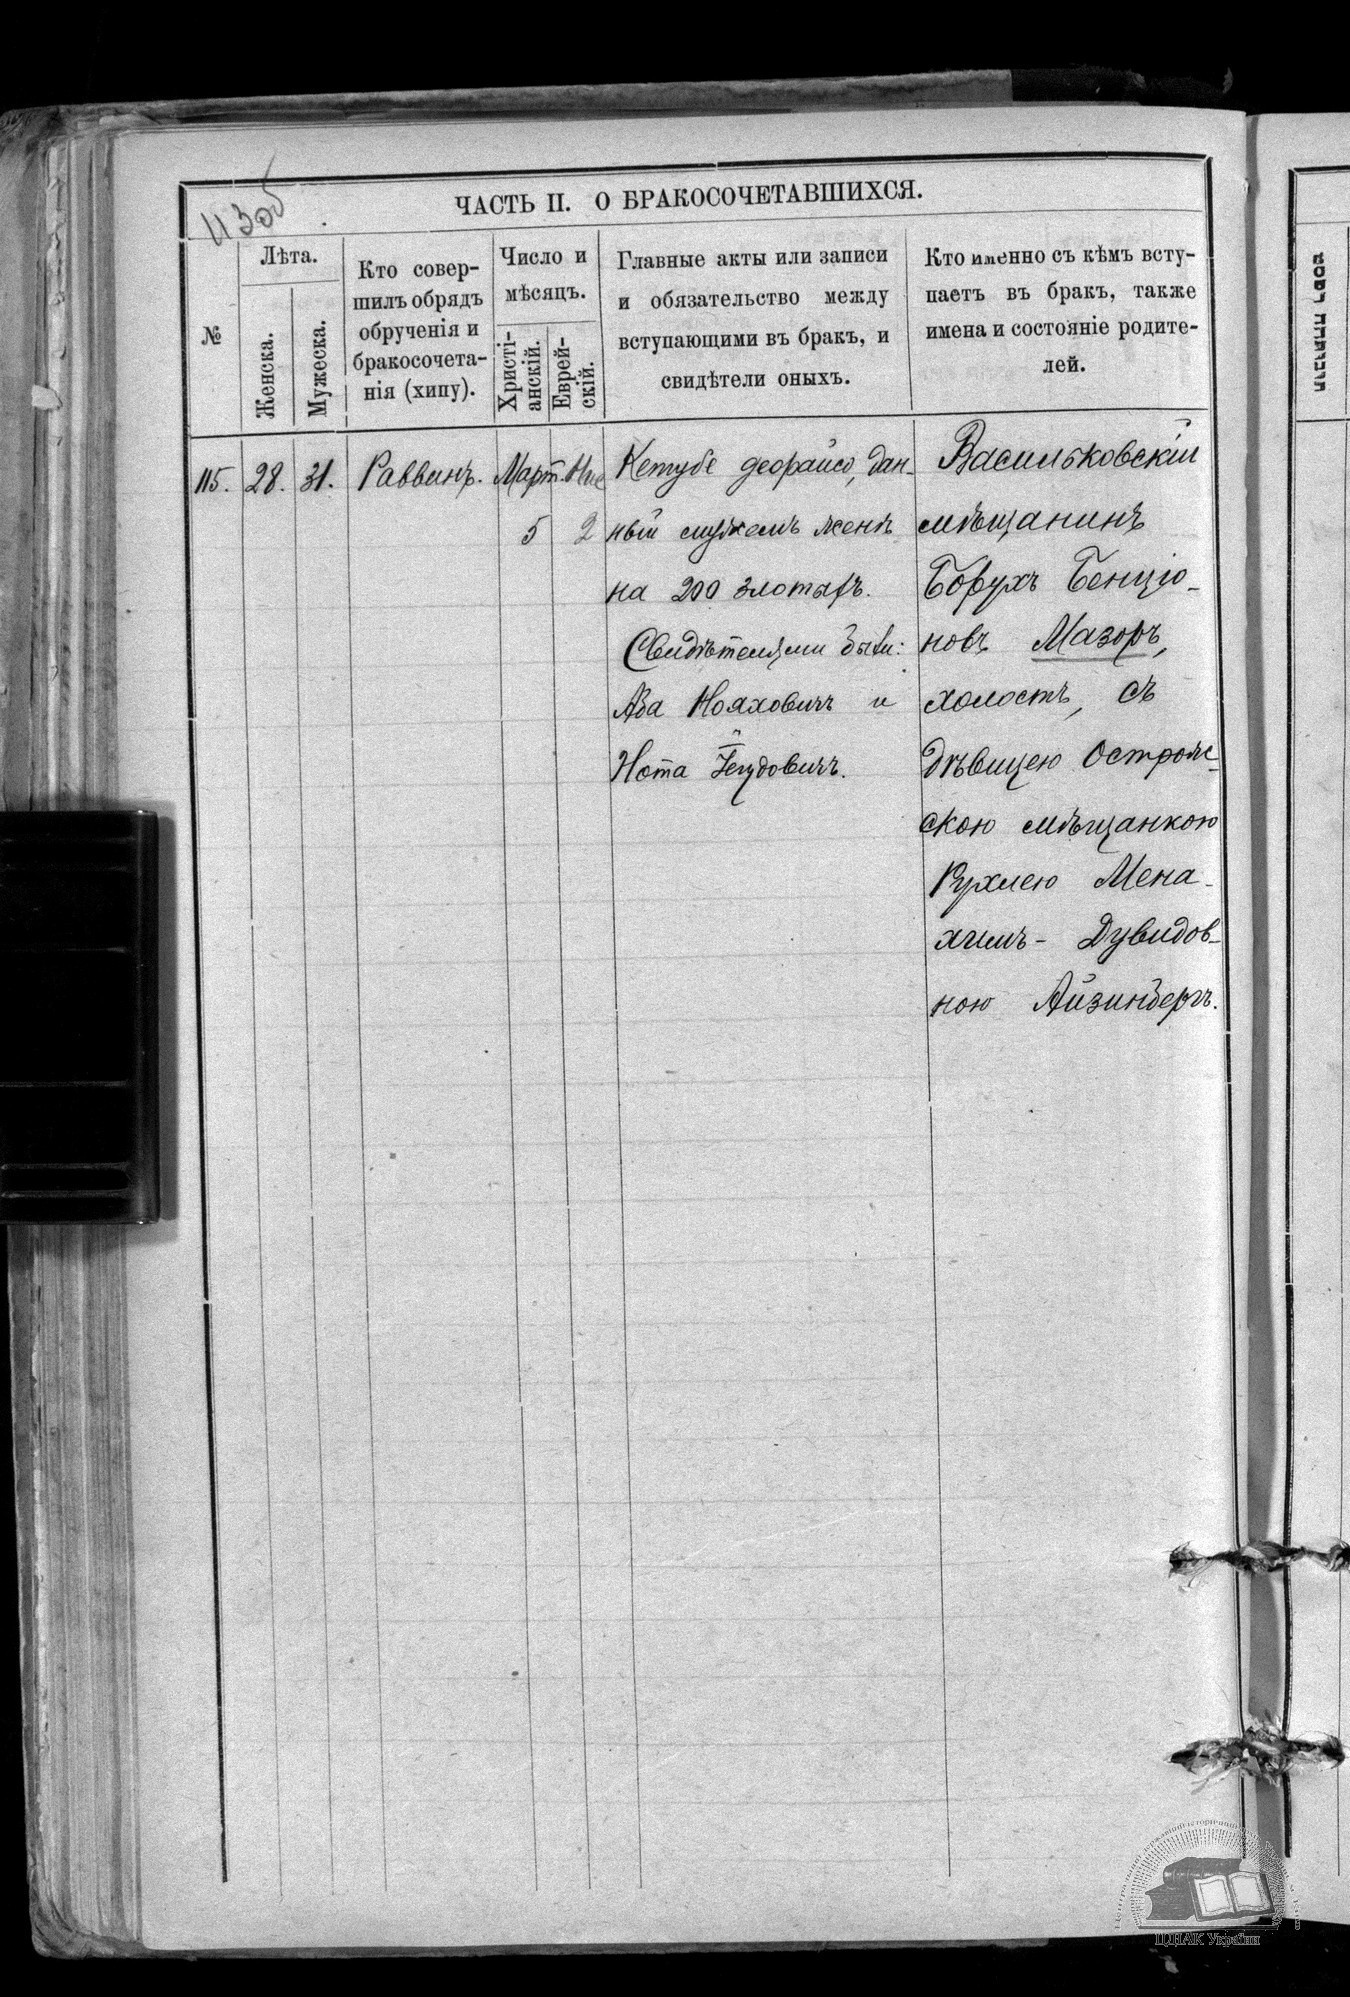 113об
ЧАСТЬ II. О БРАКОСОЧЕТАВШИХСЯ.
№
Лѣта.
Женска.
Мужеска.
Кто совер-
шилъ обрядъ
обрученія и
бракосочета-
нія (хипу).
Число и
мѣсяцъ.
Христі-
анскій.
Еврей-
скій.
Главные акты или записи
и обязательство между
вступающими въ бракъ, и
свидѣтели оныхъ.
Кто именно съ кѣмъ всту-
паетъ въ бракъ, также
имена и состояніе родите-
лей.
115. 28. 31. Раввинъ. Март. Нис
5 2
Кетубе деорайсо, дан-
ный мужемъ женѣ
на 200 злотыхъ.
Свидѣтелями были:
Аба Нояховичъ и
Нота Іегудовичъ.
Васильковскій
мѣщанинъ
Борухъ Бенціо-
новъ Мазоръ,
холостъ, съ
дѣвицею Острож-
скою мѣщанкою
Рухлею Мена-
химъ-Дувидов-
ною Айзинбергъ.
ЦДІАК України